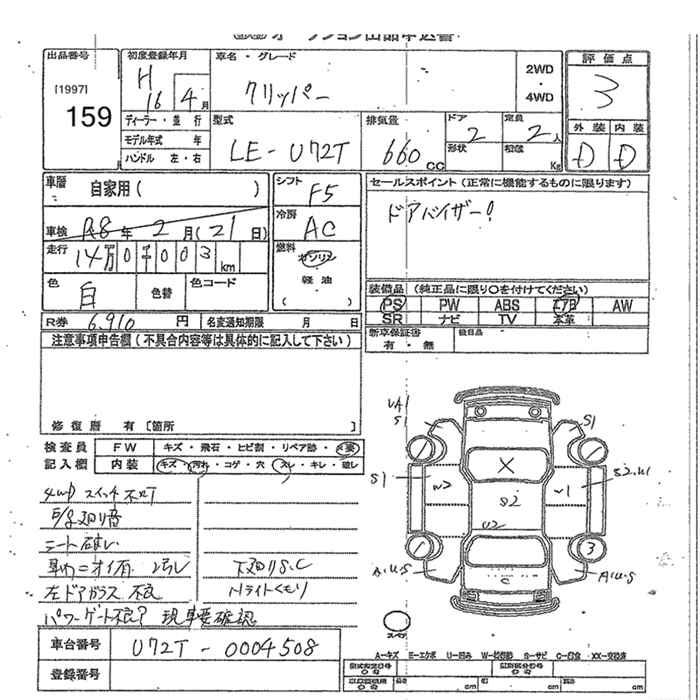 オークション出品申込書
出品番号
[1997]
159
初度登録年月
H
16 4月
車名・グレード
クリッパー
2WD
・
4WD
評価点
3
ディーラー・並行
モデル年式 年
ハンドル 左・右
型式
LE-U72T
排気量
660 cc
ドア
2
形状
定員
2人
積載
Kg
外装 内装
D D
車歴
自家用( )
車検 R8年 2月(21日)
走行
14万0千003km
色
白
色替
色コード
R券 6,910 円 名変通知期限 月 日
シフト
F5
冷房
AC
燃料
ガソリン
軽油
( )
セールスポイント(正常に機能するものに限ります)
ドアバイザー!
装備品 (純正品に限り○を付けてください)
PS PW ABS エアB AW
SR ナビ TV 本革
新車保証書
有・無
後日品
注意事項申告欄(不具合内容等は具体的に記入して下さい)
修復歴 有[箇所 ]
検査員
記入欄
FW キズ・飛石・ヒビ割・リペア跡・×要
内装 キズ・汚れ・コゲ・穴・スレ・キレ・破レ
4WDスイッチ不灯
E/g廻り音
シート破レ
左ドアガラス不良
パワーゲート不良? 現車要確認
下廻りS.C
Hライトくもり
車台番号 U72T-0004508
登録番号
UA1
S1
S1
S1
W2
X
S2
U2
C
1
S2.U1
A.U.S
3
A.U.S
スペア
A-キズ E-エクボ U-凹み W-補修跡 S-サビ C-腐食 XX-交換済
cm cm cm